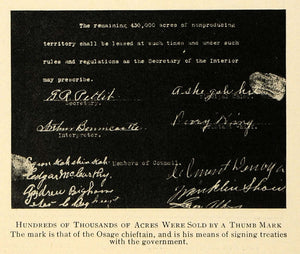 The remaining 430,000 acres of nonproducing
territory shall be leased at such times and under such
rules and regulations as the Secretary of the Interior
may prescribe.
Secretary.
Arthur Bonnicastle
Interpreter.
Members of Council.
Edgar McCarthy
Andrew Bighorse
Clement Denoya
Franklin Shaw
HUNDREDS OF THOUSANDS OF ACRES WERE SOLD BY A THUMB MARK
The mark is that of the Osage chieftain, and is his means of signing treaties
with the government.